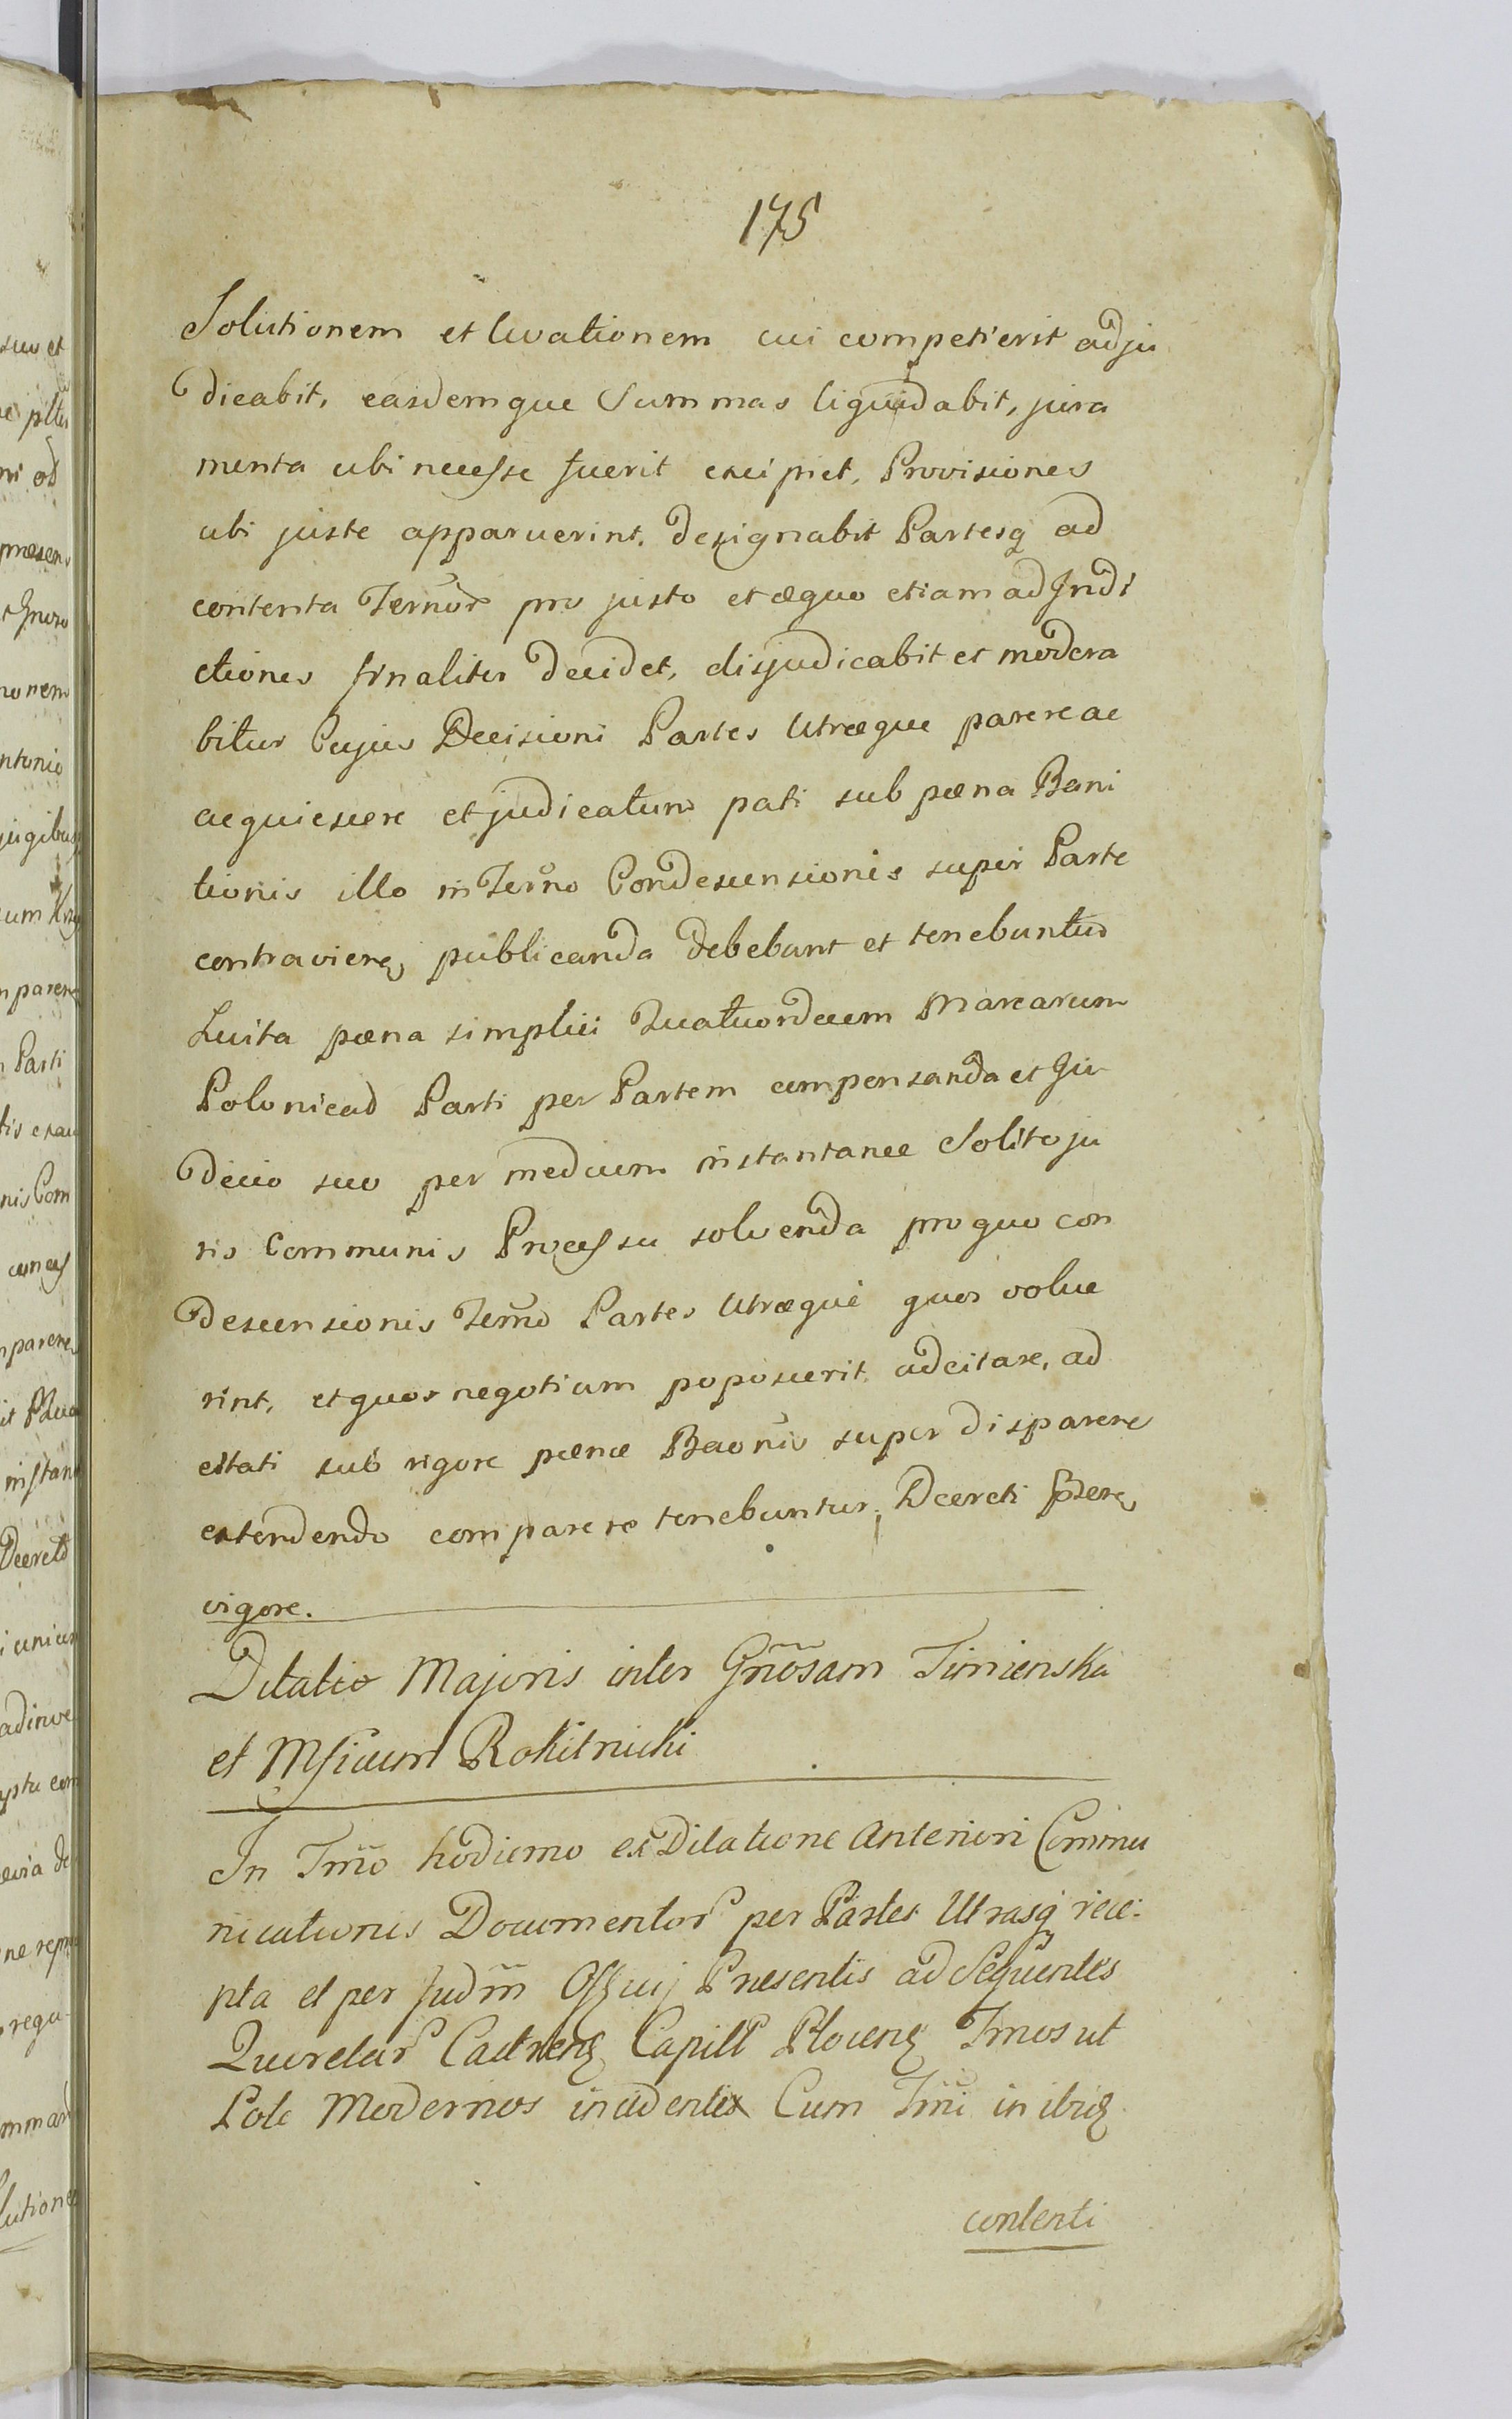 175
Solutionem et levationem cui competierit adju
dicabit, easdemque Summas liquidabit, jura
menta ubi necesse fuerit excipiet, Provisiones
ubi juste apparuerint, designabit Partesq ad
contenta Termor pro justo et æquo etiam ad Indi
ctiones finaliter decidet, disjudicabit et modera
bitur Cujus Decisioni Partes Utræque parere ac
acquiescere et judicatum pati sub pæna Bani
tionis illo in Termo Condescensionis super Parte
contraviene, publicanda debebunt et tenebuntur
Luita pæna simplici Quatuordecim Marcarum
Polonicad Parti per Partem compensanda et Ju
dicio suo per medium instantanee Solito ju
ris Communis Processu solvenda pro quo con
descensionis Termo Partes Utræque quos volue
rint, et quos negotium poposcerit adcitare, ad
citati sub rigore pænæ Baonis super disparere
extendendo comparere tenebuntur, Decreti
vigore.
Dilatio Majoris inter Gnosam Timienska
et Msicum Rokitnicki
In Tmo hodierno ex Dilatione Anteriori Commu
nicationis Documentor per Partes Utrasq rece:
pta et per Judm Offcij Præsentis ad Sequentes
Querelar Castrens Capitl Plocens Tmos ut
Pole Modernos incidentes Cum Tmi in ibiq
contenti
suo et
ni ad
præsen
nonem
ntonio
jugibus
n parere
Parti
nis Com
mparere
instan
Decreto
rega-
lutione